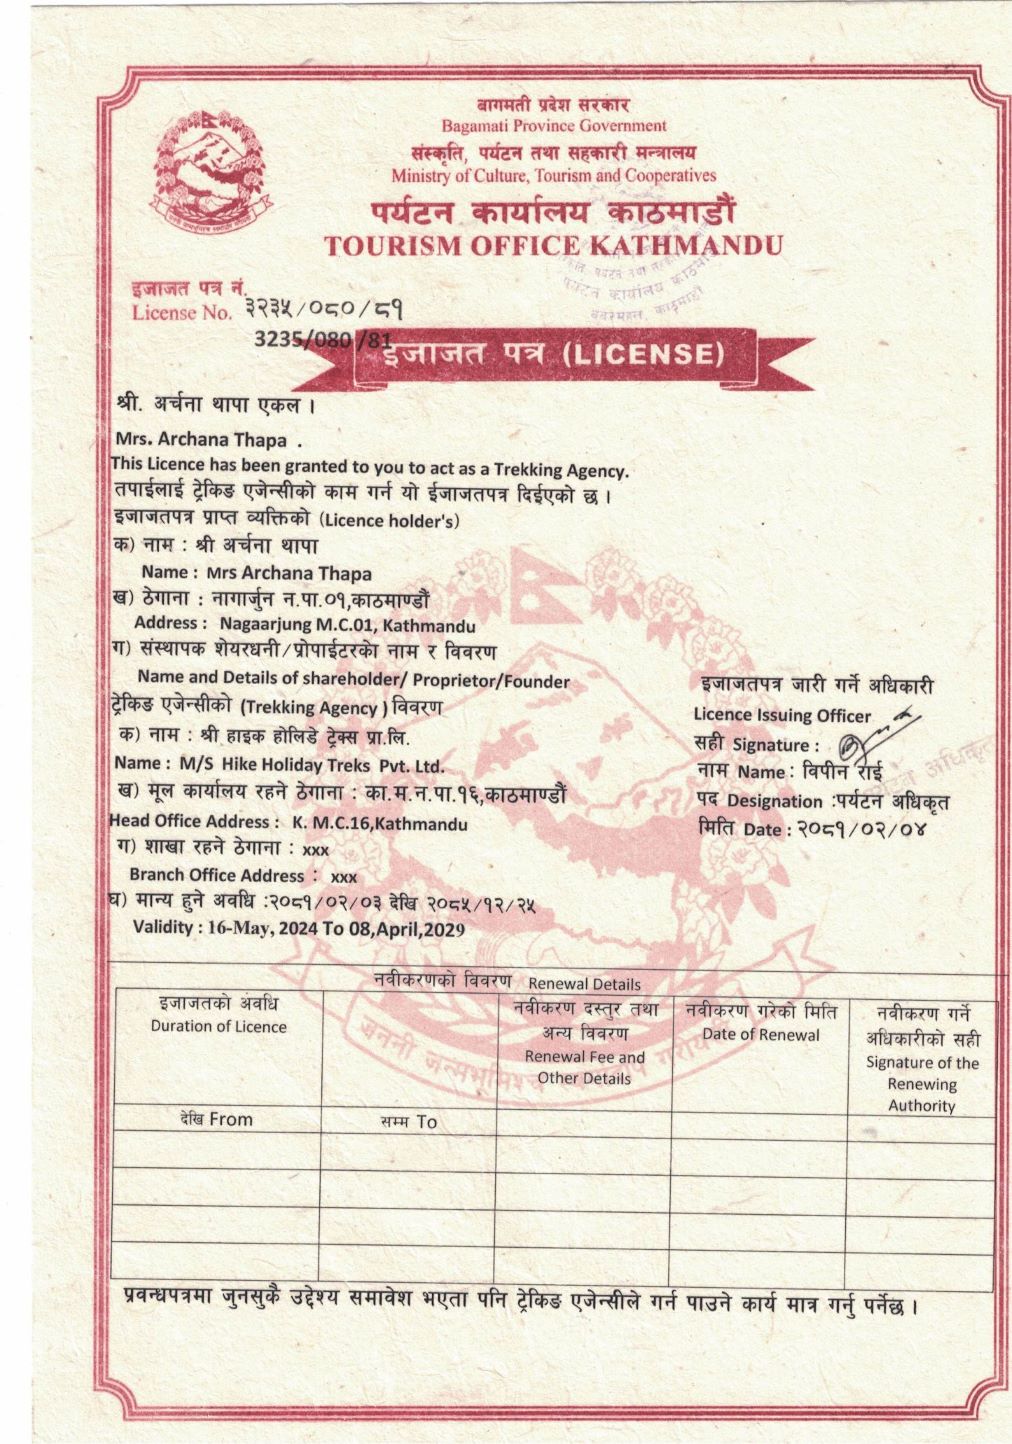 बागमती प्रदेश सरकार
Bagamati Province Government
संस्कृति, पर्यटन तथा सहकारी मन्त्रालय
Ministry of Culture, Tourism and Cooperatives
पर्यटन कार्यालय काठमाडौं
TOURISM OFFICE KATHMANDU
पर्यटन कार्यालय काठमाडौं
बबरमहल, काठमाडौं
इजाजत पत्र नं.
License No. ३२३५/०८०/८१
3235/080 /81
इजाजत पत्र (LICENSE)
श्री. अर्चना थापा एकल ।
Mrs. Archana Thapa .
This Licence has been granted to you to act as a Trekking Agency.
तपाईलाई ट्रेकिङ एजेन्सीको काम गर्न यो ईजाजतपत्र दिईएको छ ।
इजाजतपत्र प्राप्त व्यक्तिको (Licence holder's)
क) नाम : श्री अर्चना थापा
Name : Mrs Archana Thapa
ख) ठेगाना : नागार्जुन न.पा.०१,काठमाण्डौं
Address : Nagaarjung M.C.01, Kathmandu
ग) संस्थापक शेयरधनी/प्रोपाईटरकेा नाम र विवरण
Name and Details of shareholder/ Proprietor/Founder
ट्रेकिङ एजेन्सीको (Trekking Agency ) विवरण
क) नाम : श्री हाइक होलिडे ट्रेक्स प्रा.लि.
Name : M/S Hike Holiday Treks Pvt. Ltd.
ख) मूल कार्यालय रहने ठेगाना : का.म.न.पा.१६,काठमाण्डौं
Head Office Address : K. M.C.16,Kathmandu
ग) शाखा रहने ठेगाना : xxx
Branch Office Address : xxx
घ) मान्य हुने अवधि :२०८१/०२/०३ देखि २०८५/१२/२५
Validity : 16-May, 2024 To 08,April,2029
इजाजतपत्र जारी गर्ने अधिकारी
Licence Issuing Officer
सही Signature :
नाम Name : विपीन राई
पद Designation :पर्यटन अधिकृत
मिति Date : २०८१/०२/०४
पर्यटन अधिकृत
नवीकरणको विवरण Renewal Details
इजाजतको अवधि
Duration of Licence
नवीकरण दस्तुर तथा
अन्य विवरण
Renewal Fee and
Other Details
नवीकरण गरेको मिति
Date of Renewal
नवीकरण गर्ने
अधिकारीको सही
Signature of the
Renewing
Authority
देखि From
सम्म To
जननी जन्मभूमिश्च स्वर्गादपि गरीयसी
प्रवन्धपत्रमा जुनसुकै उद्देश्य समावेश भएता पनि ट्रेकिङ एजेन्सीले गर्न पाउने कार्य मात्र गर्नु पर्नेछ ।